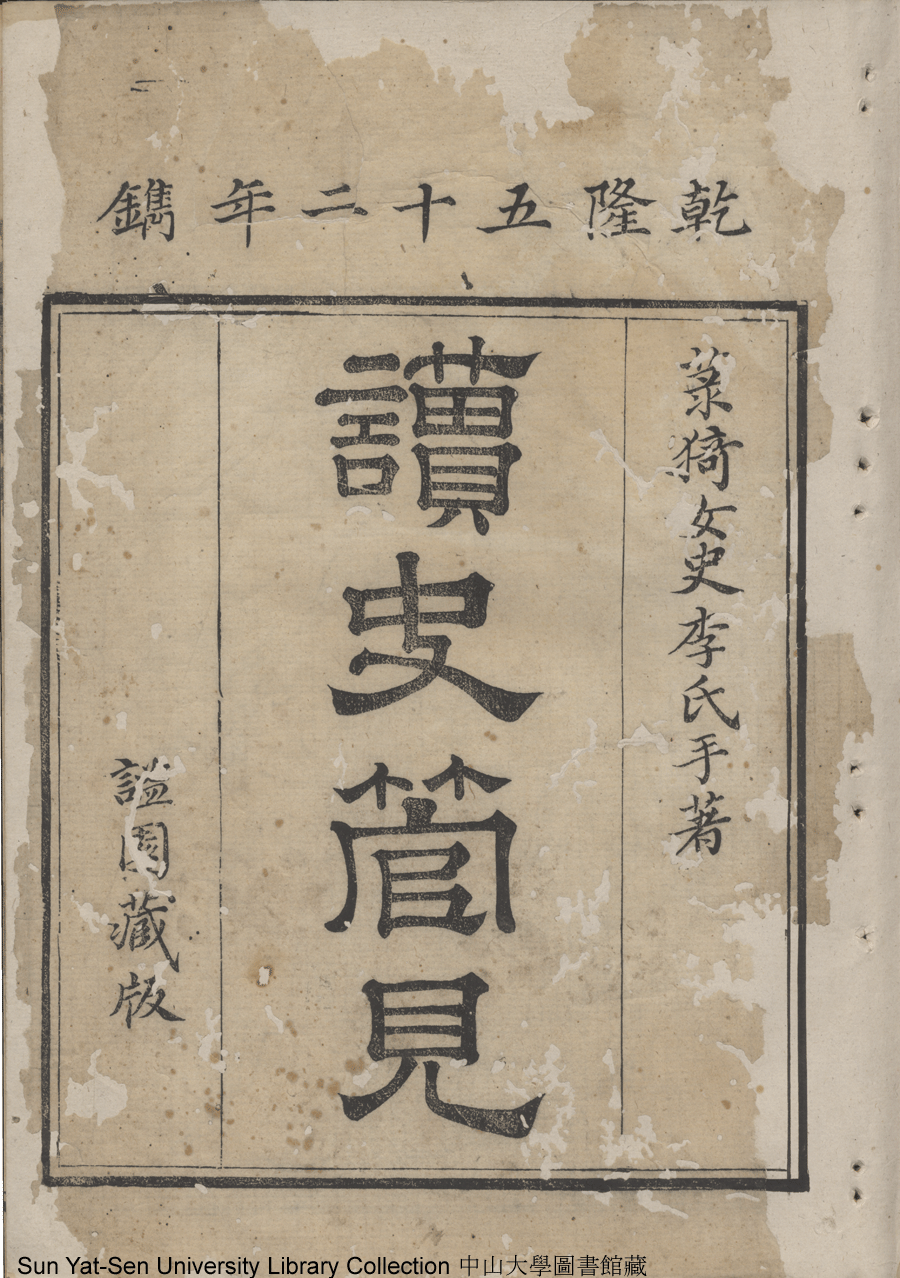 乾隆五十二年鐫
菉猗女史李氏手著
讀史管見
謐園藏版
Sun Yat-Sen University Library Collection 中山大學圖書館藏